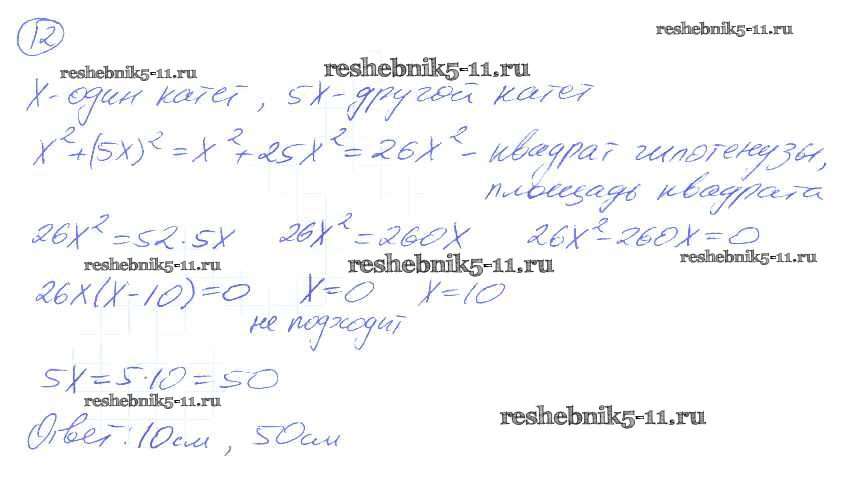 12
reshebnik5-11.ru
reshebnik5-11.ru reshebnik5-11.ru
x - один катет, 5x - другой катет
x²+(5x)²=x²+25x²=26x² - квадрат гипотенузы,
площадь квадрата
26x²=52·5x 26x²=260x 26x²-260x=0
reshebnik5-11.ru reshebnik5-11.ru reshebnik5-11.ru
26x(x-10)=0 x=0 x=10
не подходит
5x=5·10=50
reshebnik5-11.ru reshebnik5-11.ru
Ответ: 10см, 50см